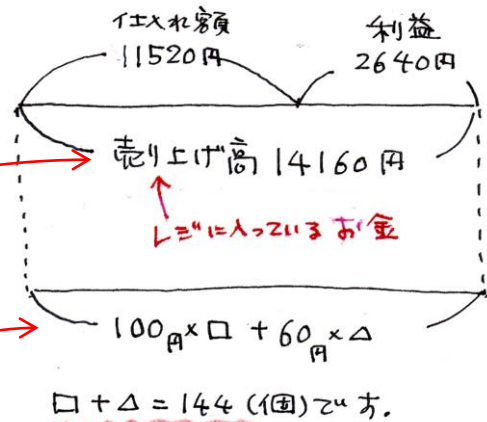 仕入れ額 利益
11520円 2640円
売り上げ高 14160円
レジに入っているお金
100円×□ + 60円×△
□ + △ = 144 (個)です.